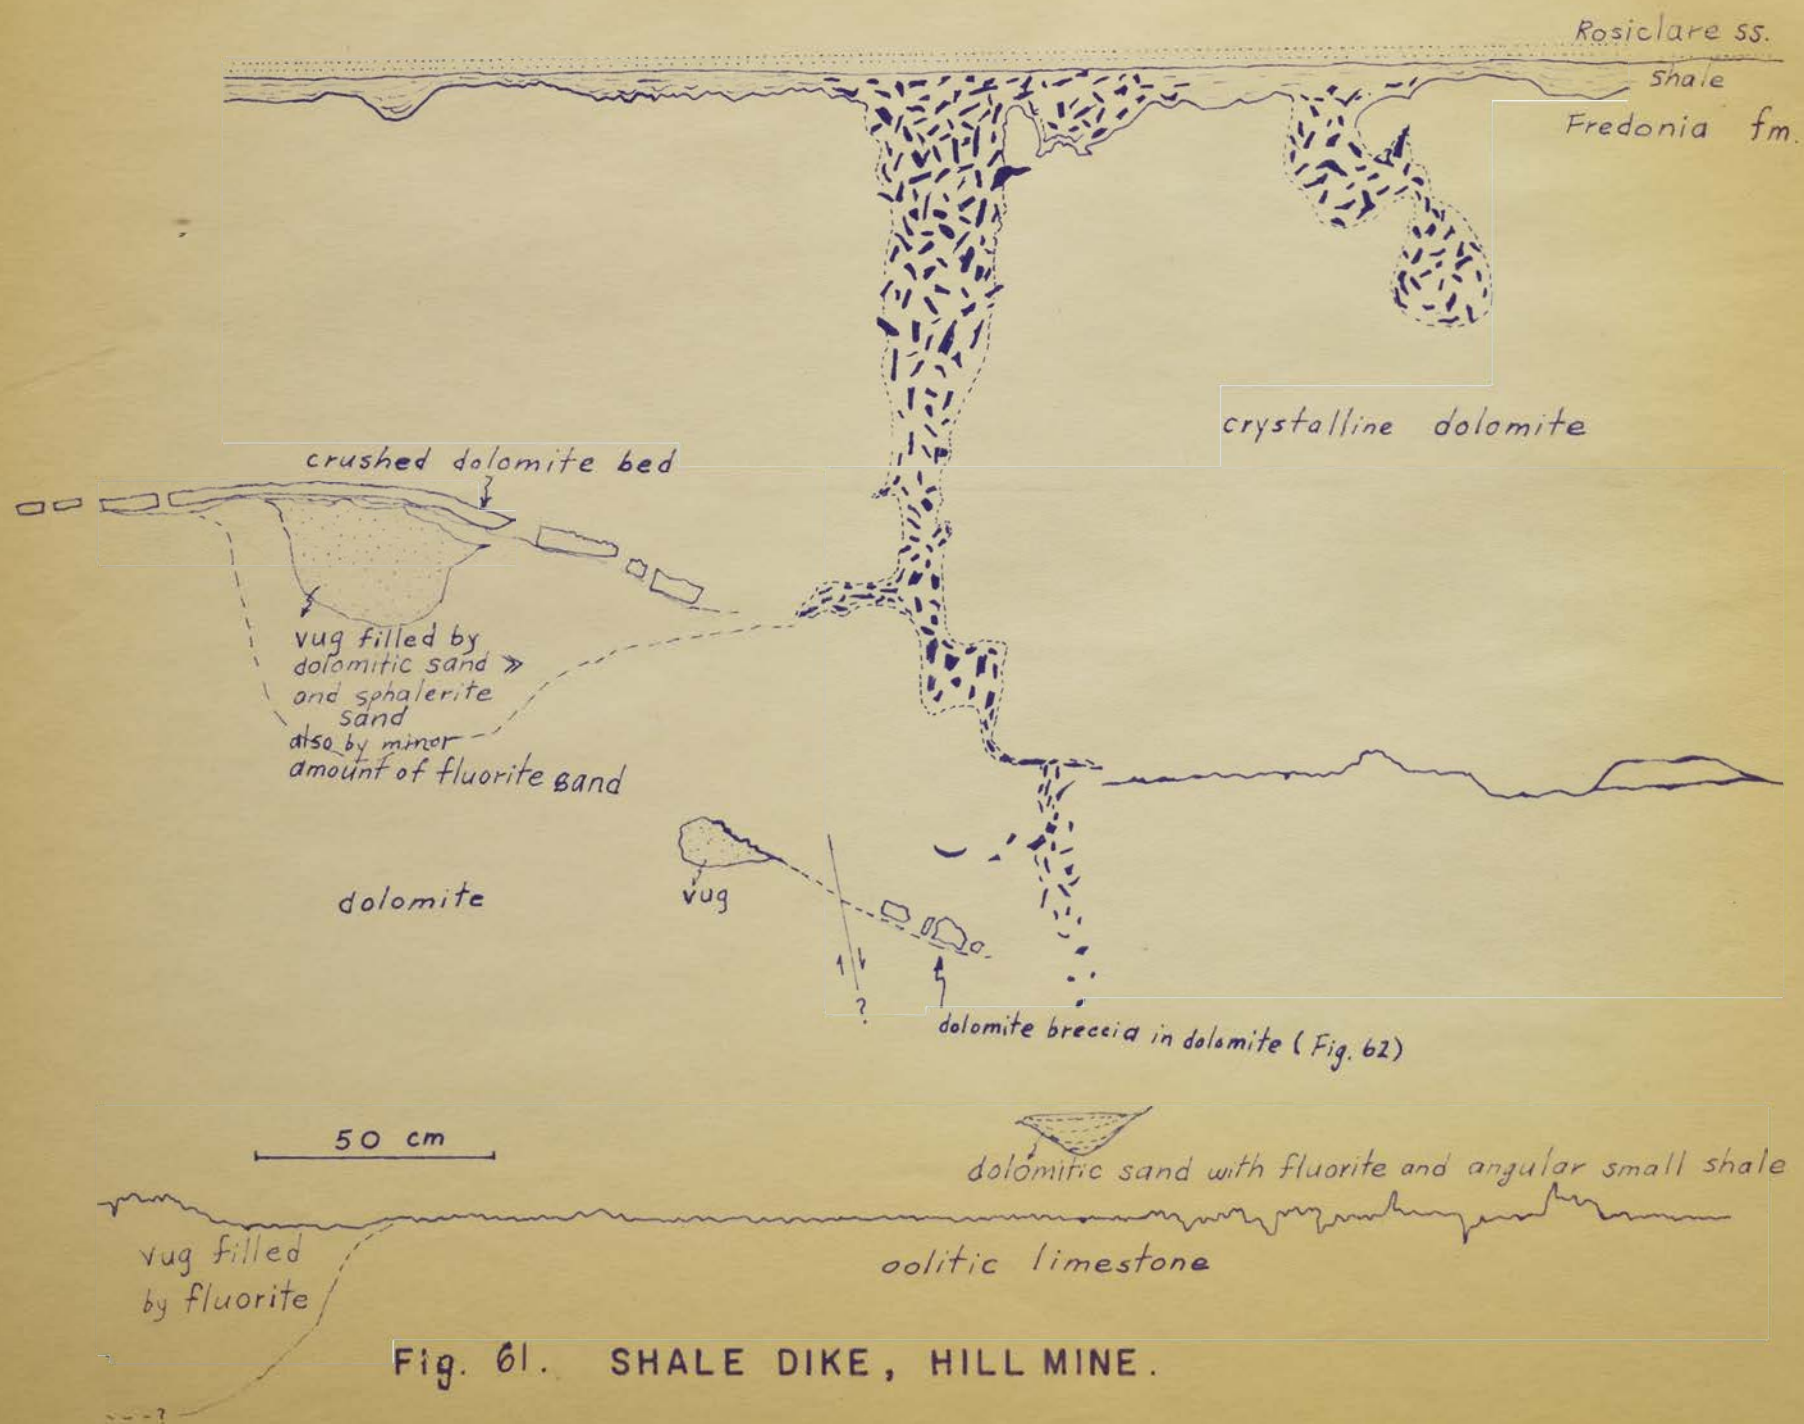 Rosiclare ss.
shale
Fredonia fm.
crystalline dolomite
crushed dolomite bed
vug filled by
dolomitic sand >>
and sphalerite
sand
also by minor
amount of fluorite sand
dolomite
vug
?
dolomite breccia in dolomite (Fig. 62)
50 cm
dolomitic sand with fluorite and angular small shale
vug filled
by fluorite
oolitic limestone
Fig. 61. SHALE DIKE, HILL MINE.
?